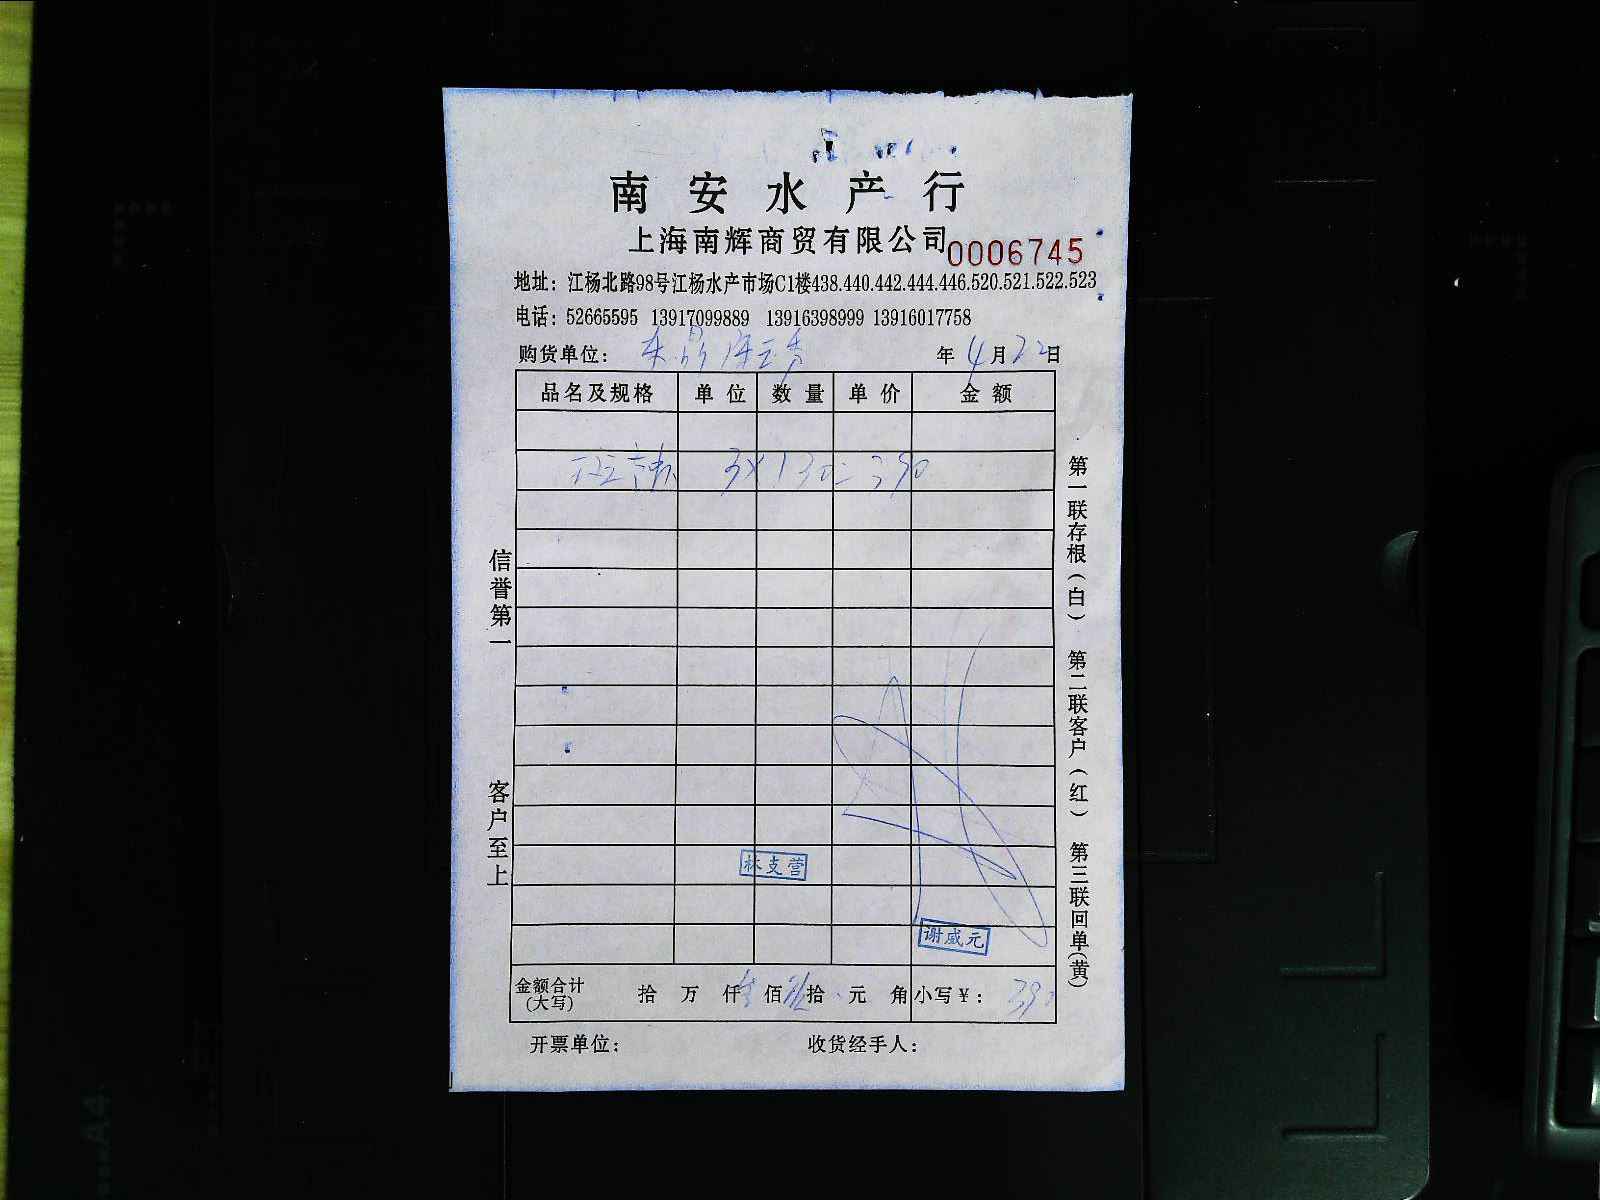 南安水产行
上海南辉商贸有限公司 0006745
地址：江杨北路98号江杨水产市场C1楼438.440.442.444.446.520.521.522.523
电话：52665595 13917099889 13916398999 13916017758
购货单位： 年4月22日
品名及规格 单位 数量 单价 金额
3×130=390
林支营
谢威元
金额合计(大写) 拾 万 仟 佰 拾 元 角 小写¥： 390
开票单位： 收货经手人：
信誉第一 客户至上
第一联存根(白) 第二联客户(红) 第三联回单(黄)
A4